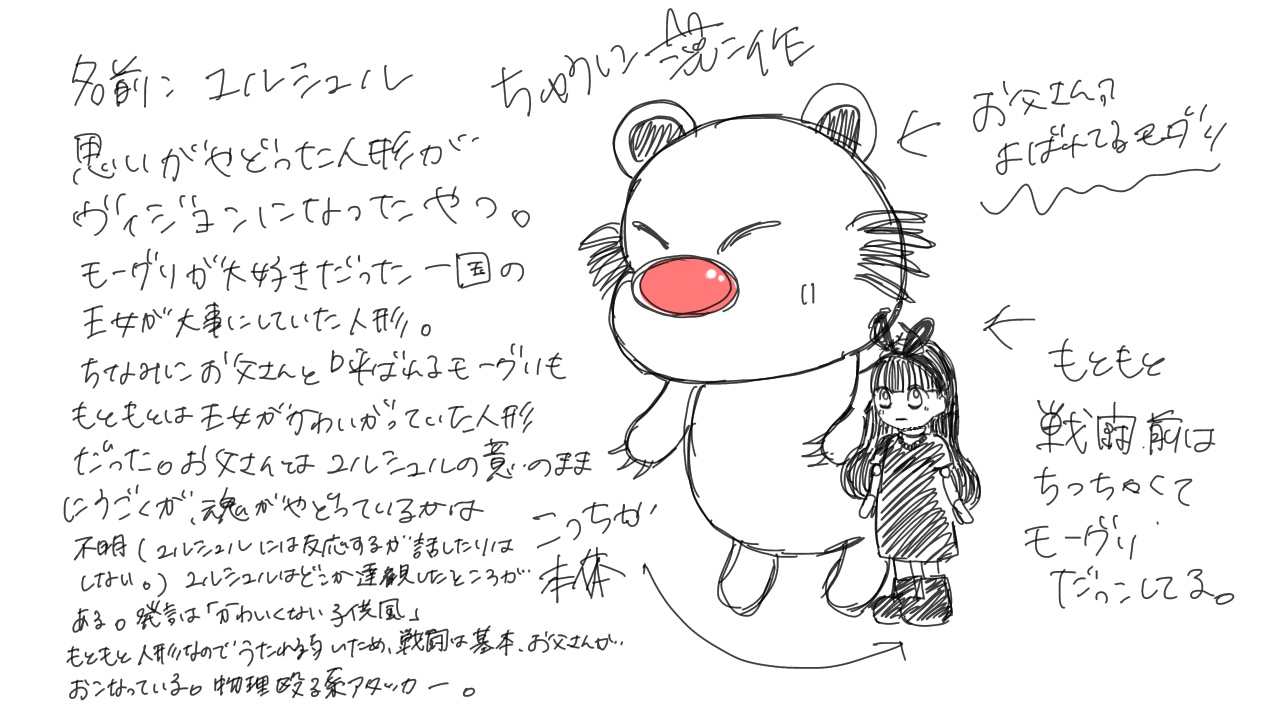 名前: ユルシュル
思いがやどった人形が
ヴィジョンになったやつ。
モーグリが大好きだった一国の
王女が大事にしていた人形。
ちなみにお父さんと呼ばれるモーグリも
もともとは王女がかわいがっていた人形
だった。お父さんはユルシュルの意のまま
にうごくが、魂がやどっているかは
不明(ユルシュルには反応するが話したりは
しない。)ユルシュルはどこか達観したところが
ある。発言は「かわいくない子供風」
もともと人形なのでうたれ弱いため、戦闘は基本、お父さんが
おこなっている。物理殴る系アタッカー。
ちゅうに
作
お父さんって
よばれてるモーグリ
もともと
戦闘前は
ちっちゃくて
モーグリ
だっこしてる。
こっちが
本体